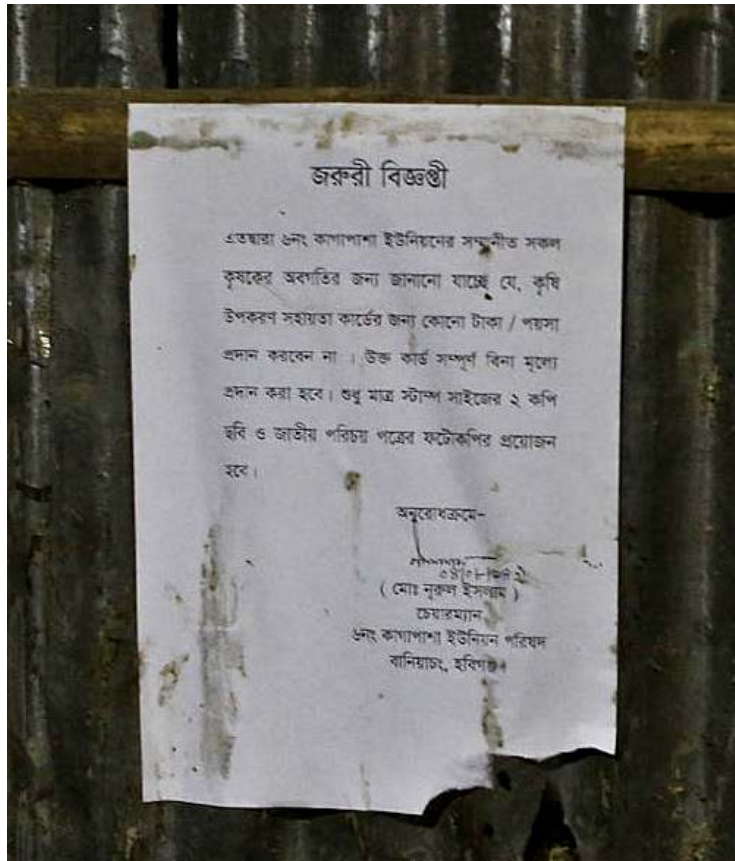 জরুরী বিজ্ঞপ্তী
এতদ্বারা ৬নং কাগাপাশা ইউনিয়নের সম্মানীত সকল
কৃষকের অবগতির জন্য জানানো যাচ্ছে যে, কৃষি
উপকরণ সহায়তা কার্ডের জন্য কোনো টাকা / পয়সা
প্রদান করবেন না । উক্ত কার্ড সম্পূর্ণ বিনা মূল্যে
প্রদান করা হবে। শুধু মাত্র স্টাম্প সাইজের ২ কপি
ছবি ও জাতীয় পরিচয় পত্রের ফটোকপির প্রয়োজন
হবে।
অনুরোধক্রমে-
( মোঃ নূরুল ইসলাম )
চেয়ারম্যান
৬নং কাগাপাশা ইউনিয়ন পরিষদ
বানিয়াচং, হবিগঞ্জ।